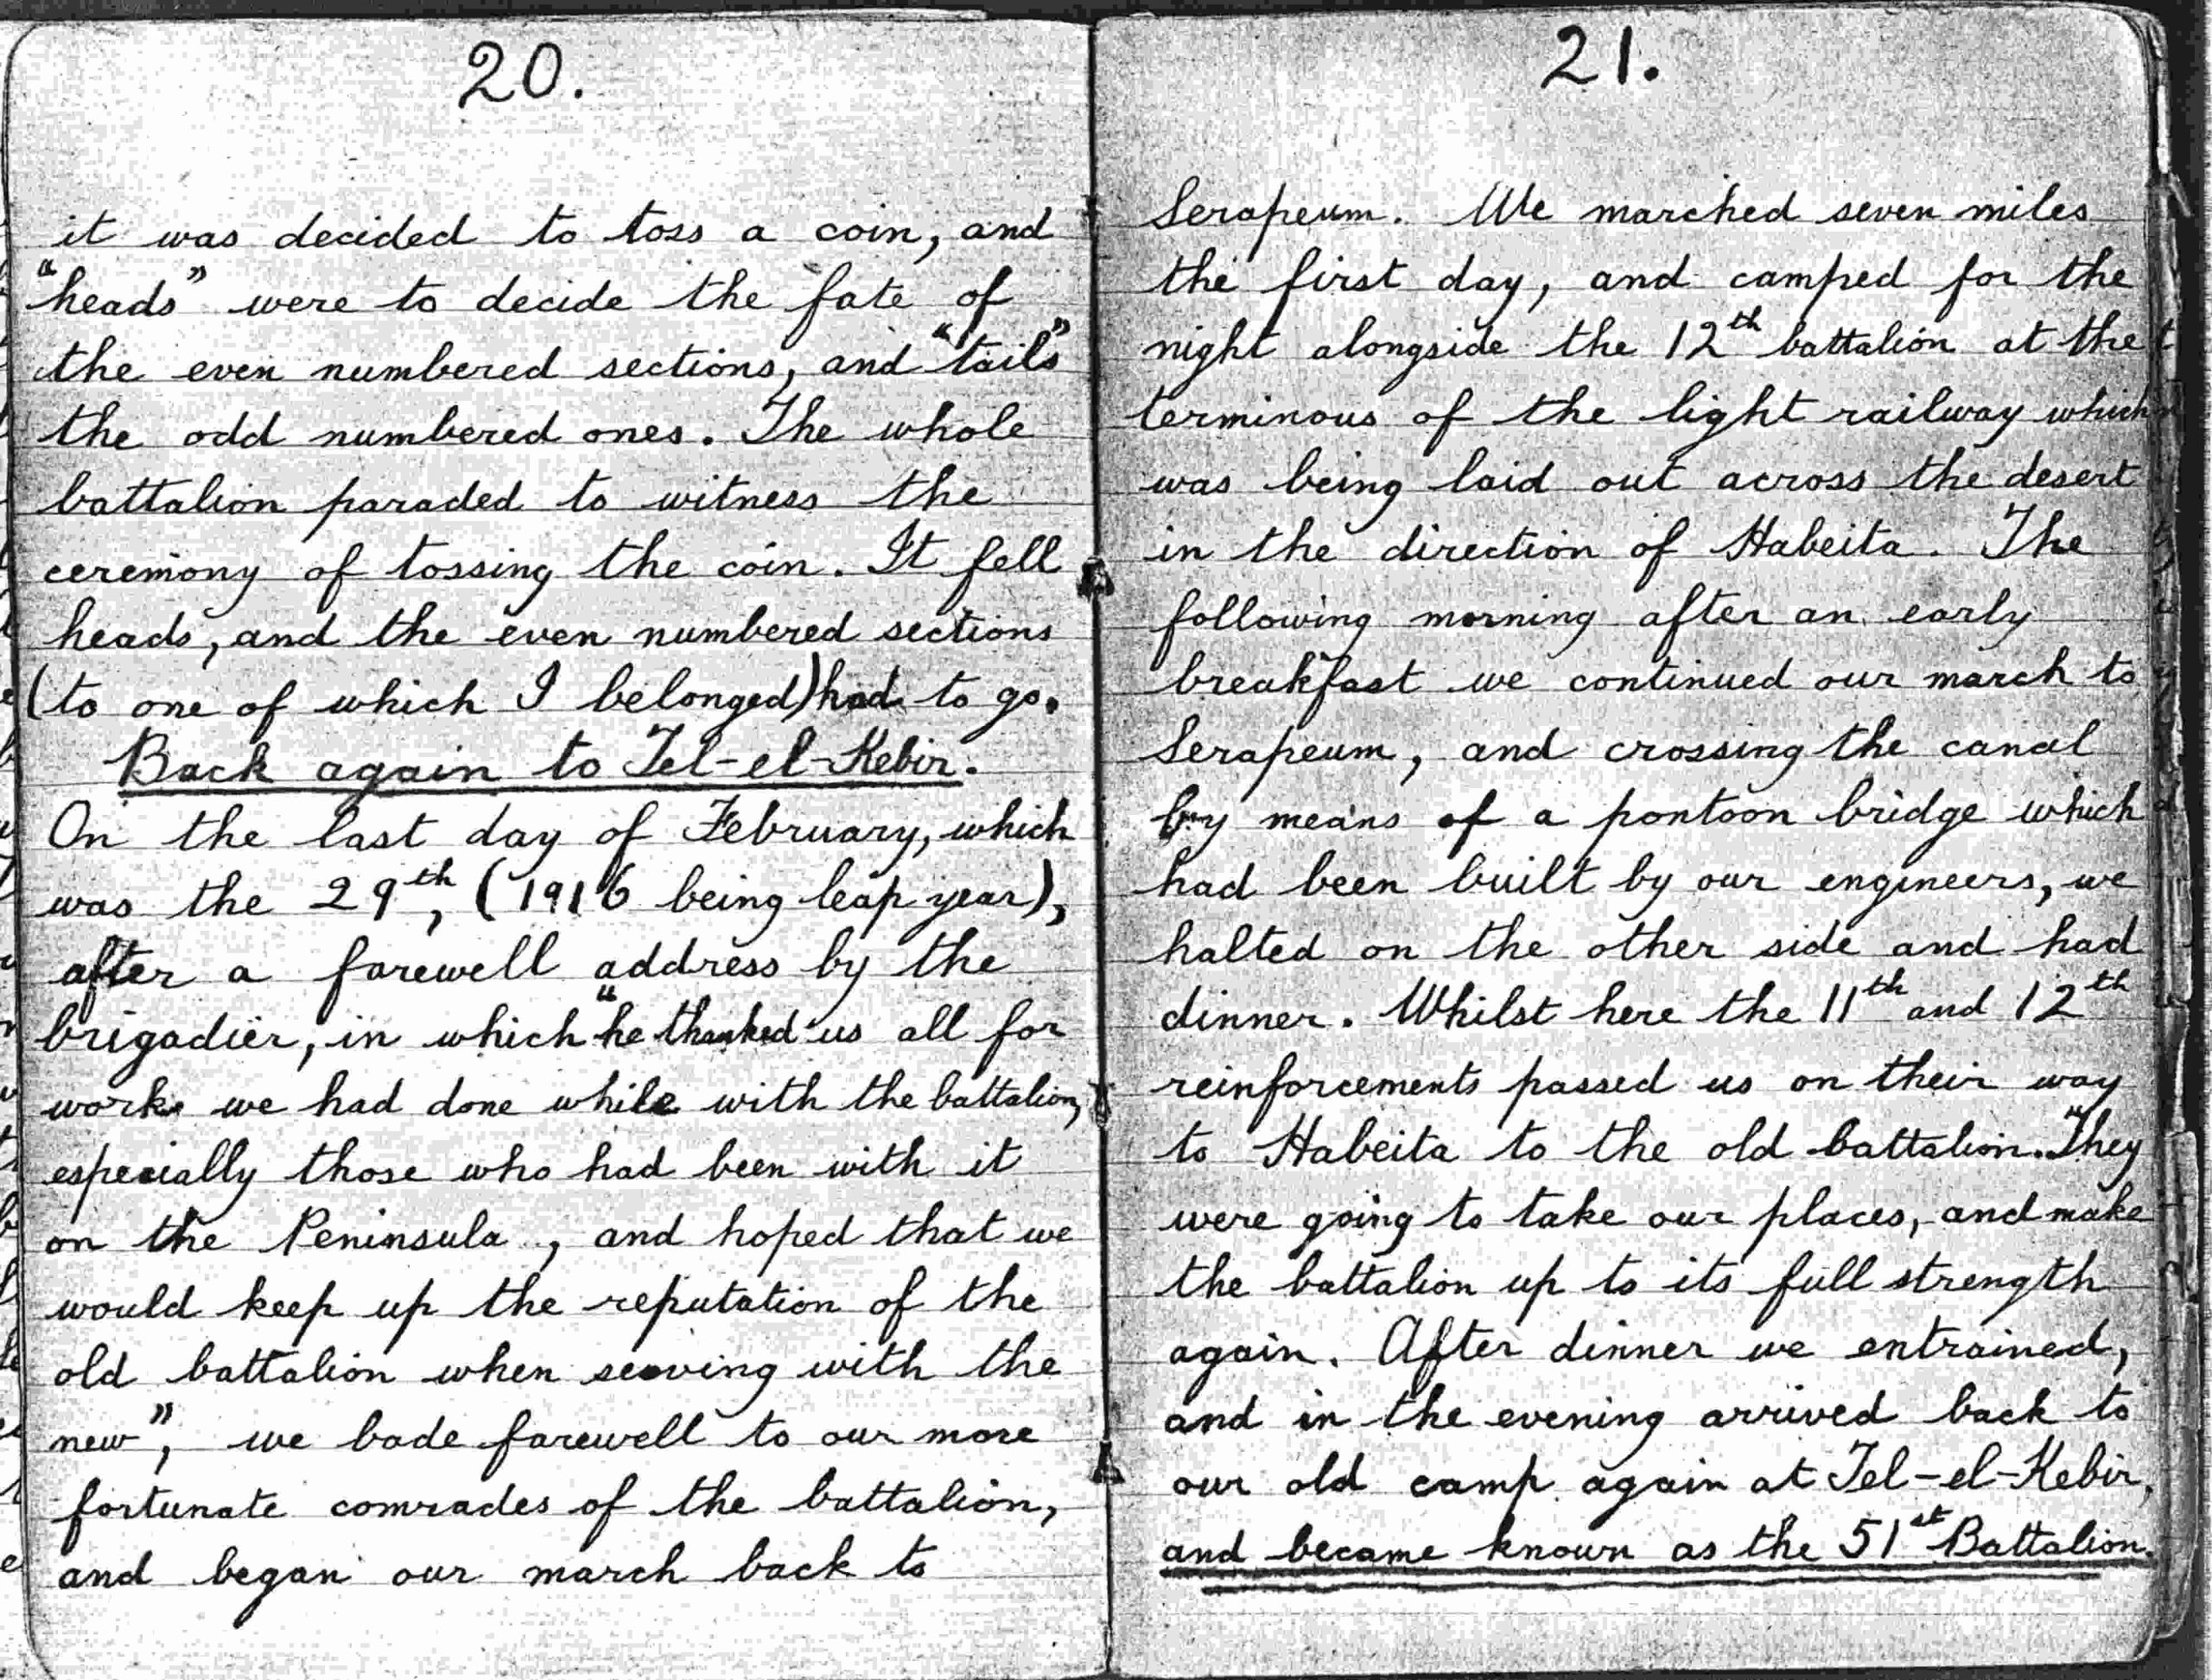 20.
it was decided to toss a coin, and
"heads" were to decide the fate of
the even numbered sections, and "tails"
the odd numbered ones. The whole
battalion paraded to witness the
ceremony of tossing the coin. It fell
heads, and the even numbered sections
(to one of which I belonged) had to go.
Back again to Tel-el-Kebir.
On the last day of February, which
was the 29th, (1916 being leap year),
after a farewell address by the
brigadier, in which "he thanked us all for
work we had done while with the battalion,
especially those who had been with it
on the Peninsula, and hoped that we
would keep up the reputation of the
old battalion when serving with the
new", we bade farewell to our more
fortunate comrades of the battalion,
and began our march back to
21.
Serapeum. We marched seven miles
the first day, and camped for the
night alongside the 12th battalion at the
terminous of the light railway which
was being laid out across the desert
in the direction of Habeita. The
following morning after an early
breakfast we continued our march to
Serapeum, and crossing the canal
by means of a pontoon bridge which
had been built by our engineers, we
halted on the other side and had
dinner. Whilst here the 11th and 12th
reinforcements passed us on their way
to Habeita to the old battalion. They
were going to take our places, and make
the battalion up to its full strength
again. After dinner we entrained,
and in the evening arrived back to
our old camp again at Tel-el-Kebir,
and became known as the 51st Battalion.